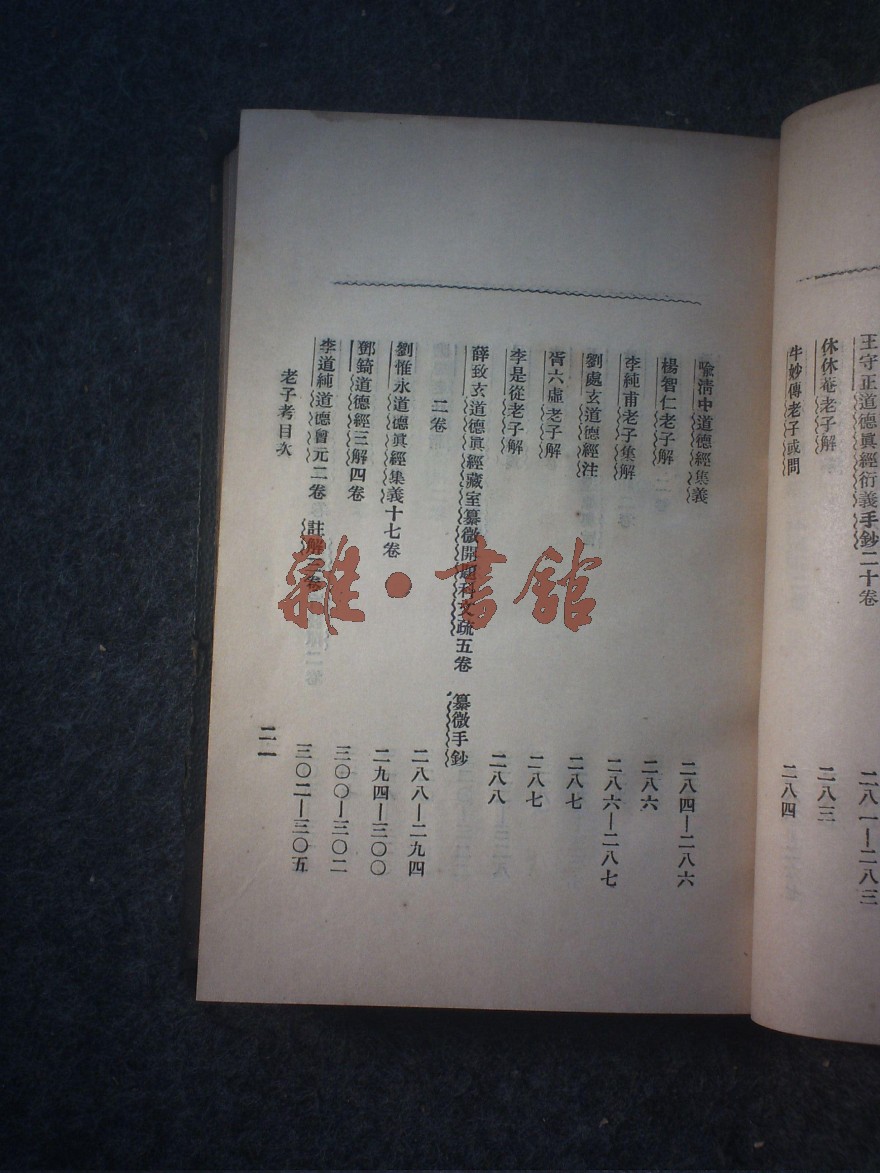 王守正道德眞經衍義手鈔二十卷 二八一—二八三
休休菴老子解 二八三
牛妙傳老子或問 二八四
喩清中道德經集義 二八四—二八六
楊智仁老子解 二八六
李純甫老子集解 二八六—二八七
劉處玄道德經注 二八七
胥六虛老子解 二八七
李是從老子解 二八八
薛致玄道德眞經藏室纂微開題科文疏五卷 纂微手鈔
二卷 二八八—二九四
劉惟永道德眞經集義十七卷 二九四—三〇〇
鄧錡道德經三解四卷 三〇〇—三〇二
李道純道德會元二卷 註解三卷 三〇二—三〇五
老子考目次 二一
雜·書館